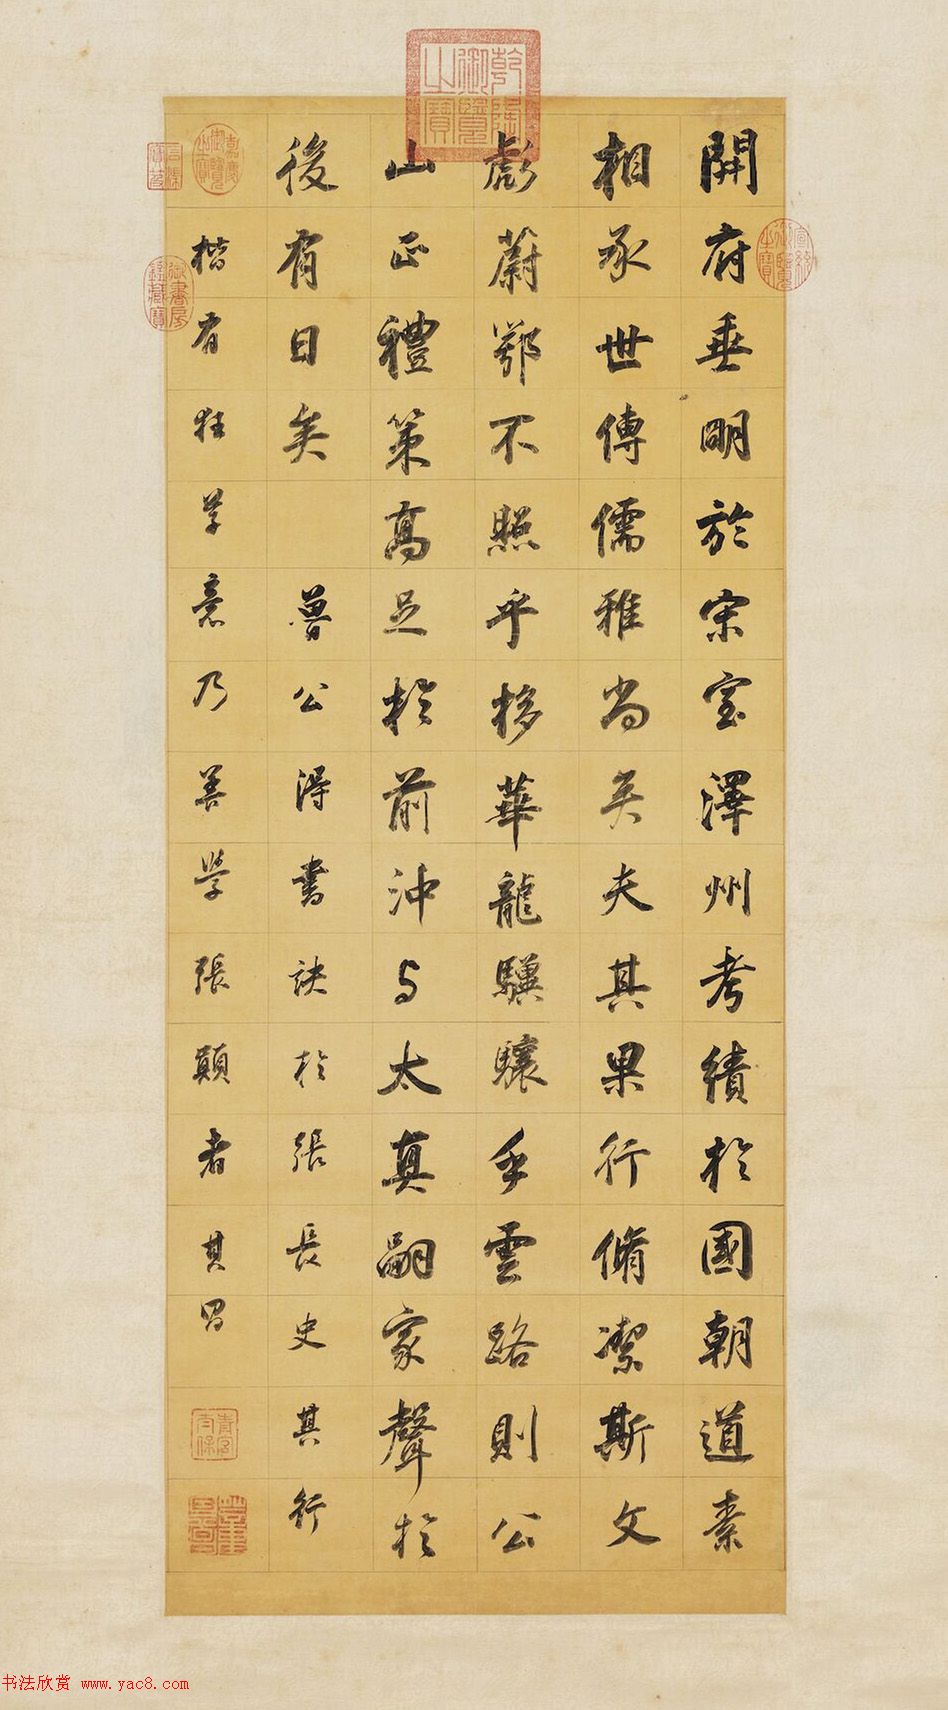 乾隆御覽之寶
開府垂明於宋室澤州考績於國朝道素
相承世傳儒雅尚矣夫其果行脩潔斯文
彪蔚鄂不照乎栘華龍驥驤乎雲路則公
山正禮策高足於前沖与太真嗣家聲於
後有日矣 魯公得書訣於張長史其行
楷有狂草意乃善學張顛者 其昌
宣統御覽之寶
嘉慶御覽之寶
石渠寶笈
御書房鑑藏寶
青宮太保
书法欣赏 www.yac8.com